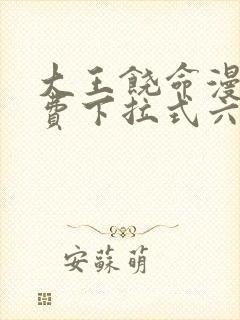 大王饒命漫
費下拉式六
安蘇萌